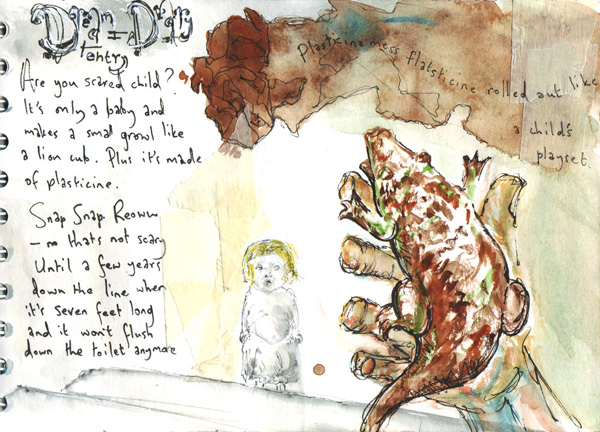 Dream = Diary
entry
Are you scared child?
It's only a baby and
makes a small growl like
a lion cub. Plus it's made
of plasticine.
Snap Snap Reoww
– no thats not scary
Until a few years
down the line when
it's seven feet long
and it won't flush
down the toilet anymore
Plasticine mess flatsticine rolled out like
a child's
playset.